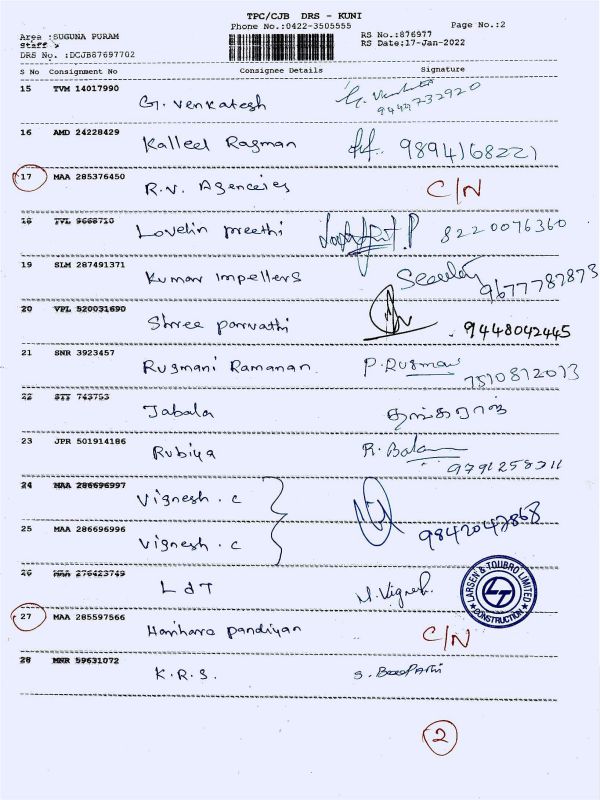 TPC/CJB DRS - KUNI
Phone No.:0422-3505555 Page No.:2
Area :SUGUNA PURAM RS No.:876977
Staff : RS Date:17-Jan-2022
DRS No. :DCJB87697702
S No Consignment No Consignee Details Signature
15 TVM 14017990 G. Venkatesh G. Venkatesh
9444732920
16 AMD 24228429 Kalleel Ragman 9894168221
17 MAA 285376450 R.V. Agenceies C/N
18 TVL 9668710 Lovelin preethi 8220076360
19 SLM 287491371 Kumar impellers
9677787873
20 VPL 520031690 Shree parvathi 9448042445
21 SNR 3923457 Rugmani Ramanan. P. Rugmani
7510812013
22 STT 743753 Jabala தங்கராஜ்
23 JPR 501914186 Rubiya R. Balam
9791258211
24 MAA 286696997 Vignesh . C
9842042868
25 MAA 286696996 Vignesh . C
26 MAA 276423749 L d T M. Vignesh.
LARSEN & TOUBRO LIMITED
LT
CONSTRUCTION
27 MAA 285597566 Harihara Pandiyan C/N
28 MNR 59631072 K.R.S.
2